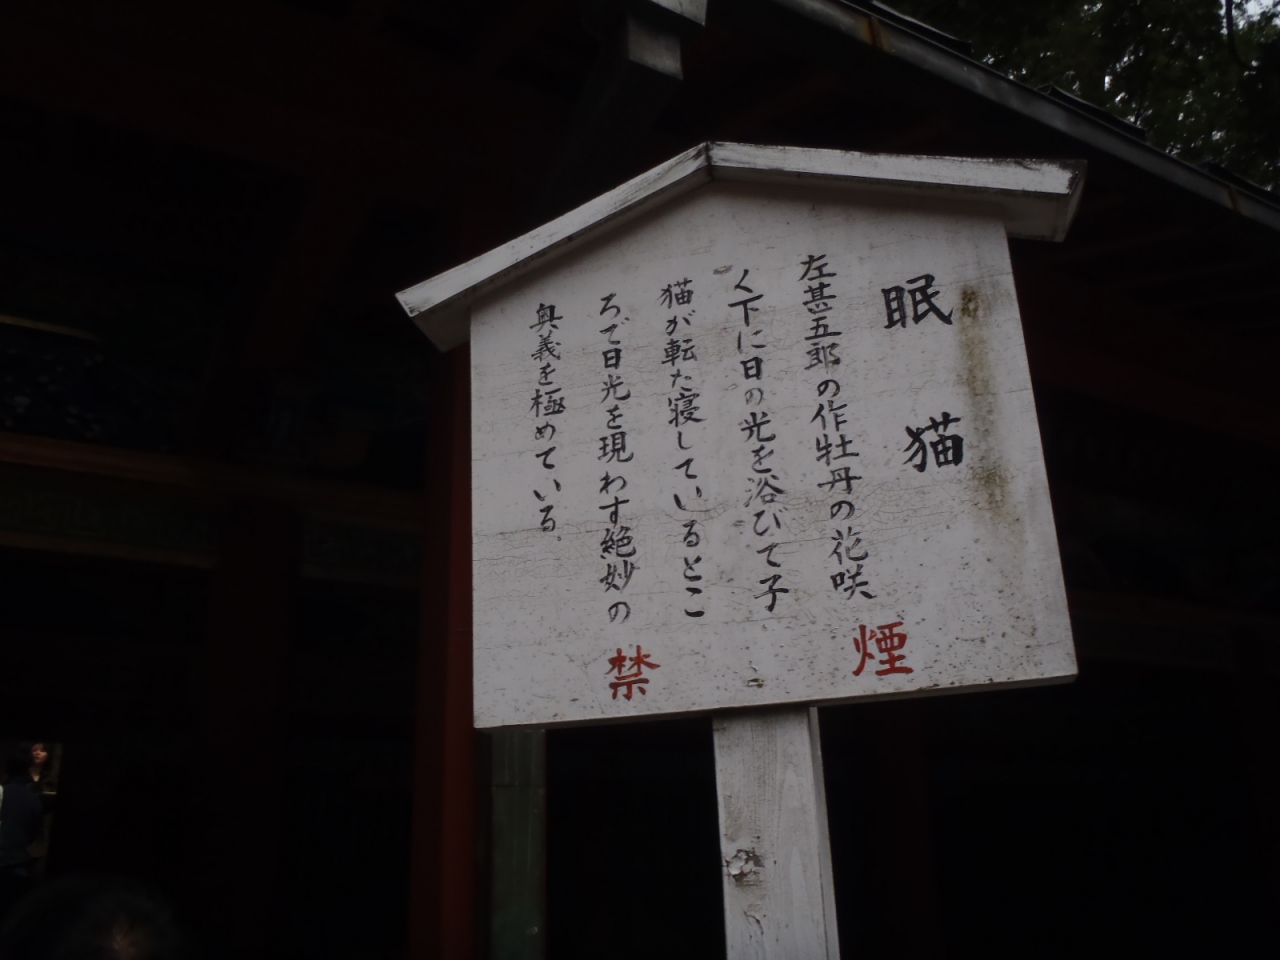 眠猫
左甚五郎の作牡丹の花咲
く下に日の光を浴びて子
猫が転た寝しているとこ
ろで日光を現わす絶妙の
奥義を極めている。
禁煙